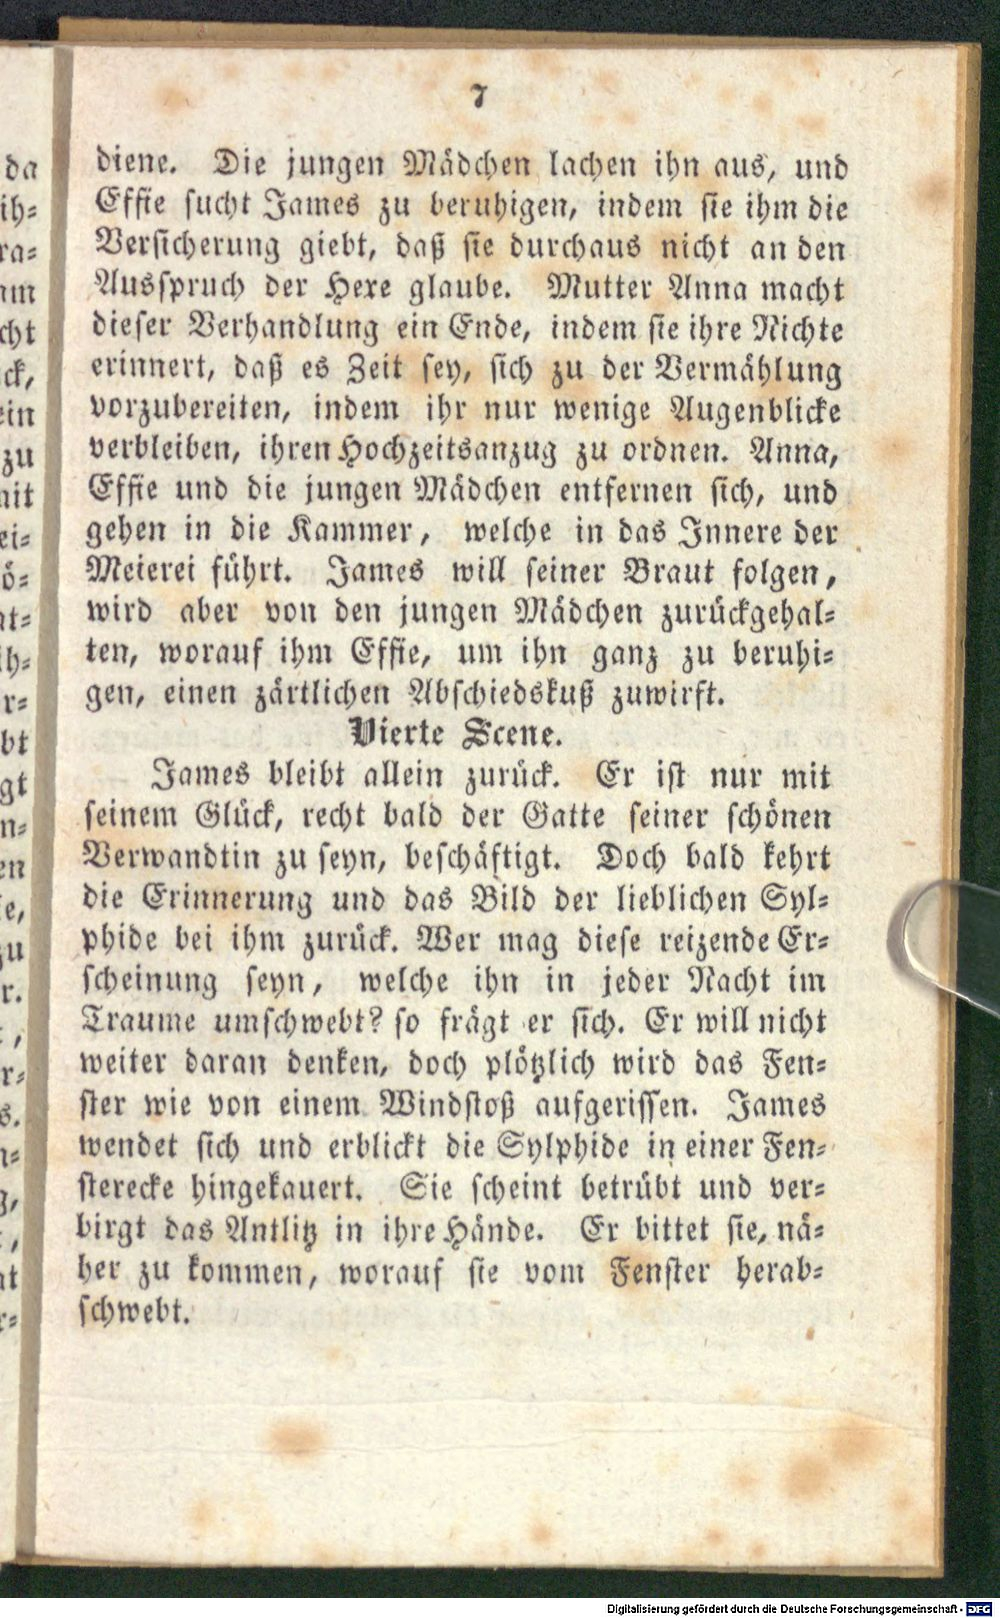 7
diene. Die jungen Mädchen lachen ihn aus, und
Effie sucht James zu beruhigen, indem sie ihm die
Versicherung giebt, daß sie durchaus nicht an den
Ausspruch der Hexe glaube. Mutter Anna macht
dieser Verhandlung ein Ende, indem sie ihre Nichte
erinnert, daß es Zeit sey, sich zu der Vermählung
vorzubereiten, indem ihr nur wenige Augenblicke
verbleiben, ihren Hochzeitsanzug zu ordnen. Anna,
Effie und die jungen Mädchen entfernen sich, und
gehen in die Kammer, welche in das Innere der
Meierei führt. James will seiner Braut folgen,
wird aber von den jungen Mädchen zurückgehal-
ten, worauf ihm Effie, um ihn ganz zu beruhi-
gen, einen zärtlichen Abschiedskuß zuwirft.
Vierte Scene.
James bleibt allein zurück. Er ist nur mit
seinem Glück, recht bald der Gatte seiner schönen
Verwandtin zu seyn, beschäftigt. Doch bald kehrt
die Erinnerung und das Bild der lieblichen Syl-
phide bei ihm zurück. Wer mag diese reizende Er-
scheinung seyn, welche ihn in jeder Nacht im
Traume umschwebt? so frägt er sich. Er will nicht
weiter daran denken, doch plötzlich wird das Fen-
ster wie von einem Windstoß aufgerissen. James
wendet sich und erblickt die Sylphide in einer Fen-
sterecke hingekauert. Sie scheint betrübt und ver-
birgt das Antlitz in ihre Hände. Er bittet sie, nä-
her zu kommen, worauf sie vom Fenster herab-
schwebt.
Digitalisierung gefördert durch die Deutsche Forschungsgemeinschaft - DFG